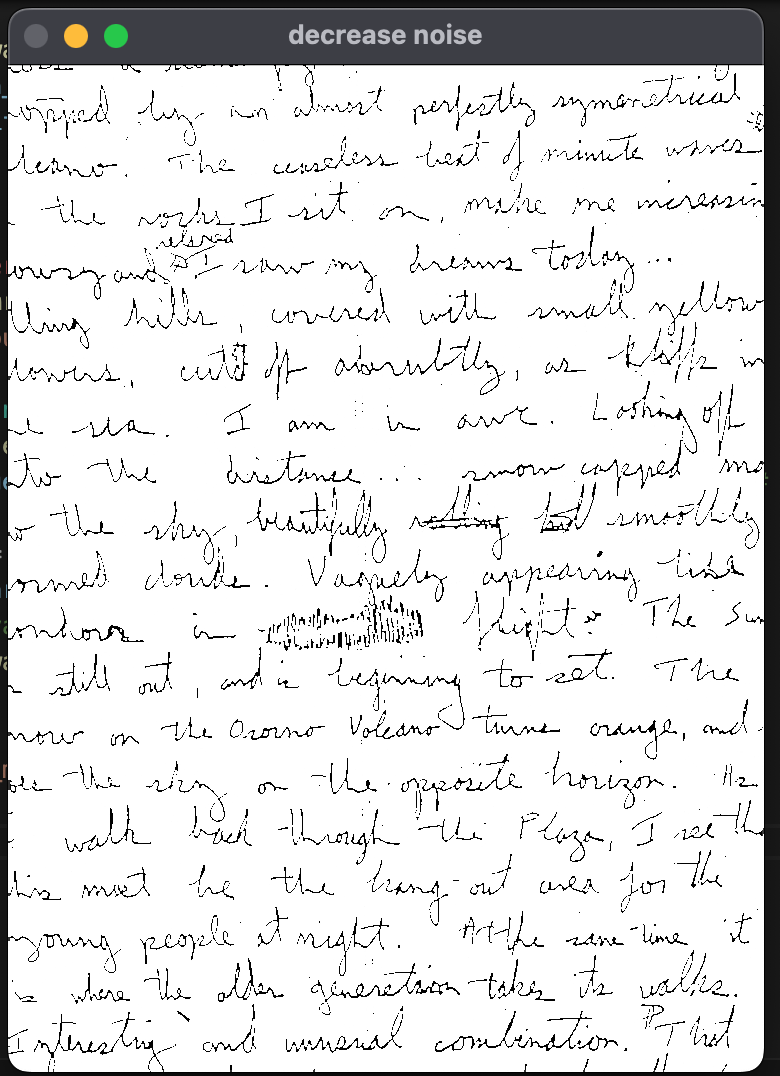 decrease noise
opped by an almost perfectly symmetrical
lcano. The ceaseless beat of minute waves
the rocks I sit on, make me increasin
relaxed
owsy and I saw my dreams today...
lling hills, covered with small yellow
lowers, cut off aburubtly, as kliffs in
e sea. I am in awe. Looking off
nto the distance... snow capped mo
w the sky, beautifully rolling but smoothly
ormed clouds. Vaguely appearing like
ondors in flight. The Sun
s still out, and is beginning to set. The
now on the Osorno Volcano turns orange, and
oes the sky on the opposite horizon. As
I walk back through the Plaza, I see tha
his most be the hang-out area for the
young people at night. At the same time it
is where the older generation takes its walks.
Interesting and unusual combination. That